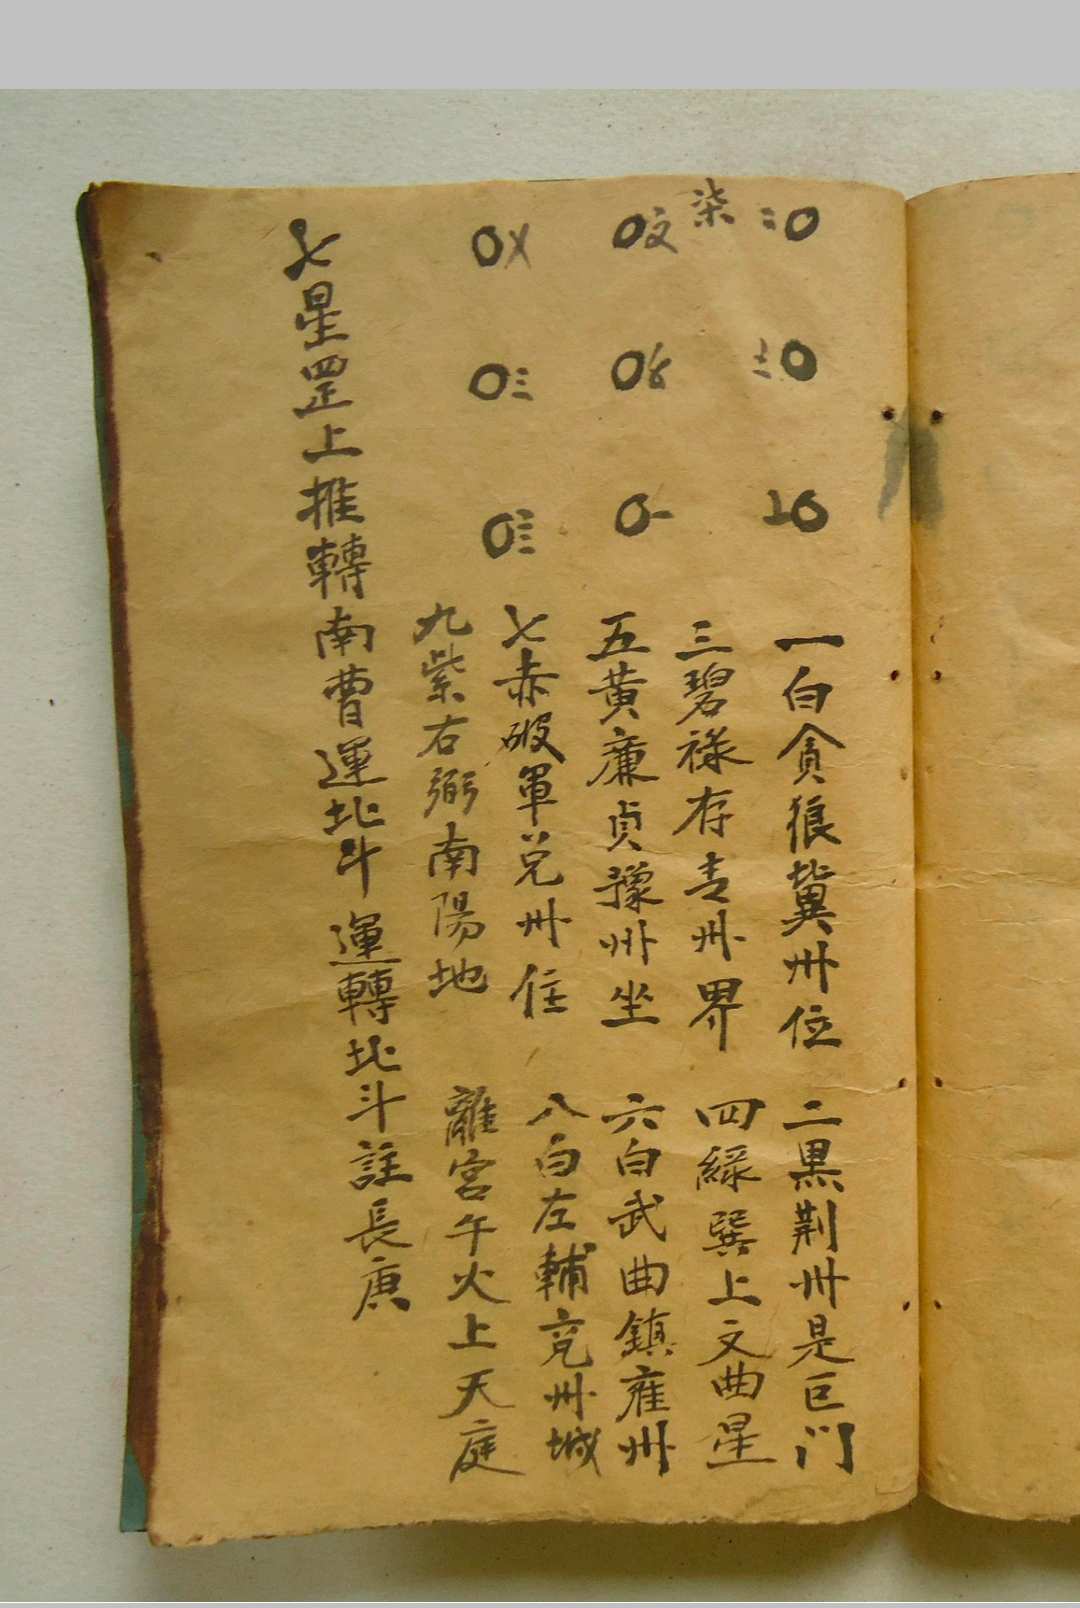 柒
文
一白貪狼冀州位 二黑荆州是巨门
三碧祿存青州界 四綠巽上文曲星
五黃廉貞豫州坐 六白武曲鎮雍州
七赤破軍兑州住 八白左輔兗州城
九紫右弼南陽地 離宫午火上天庭
七星罡上推轉南曹運北斗運轉北斗註長庚